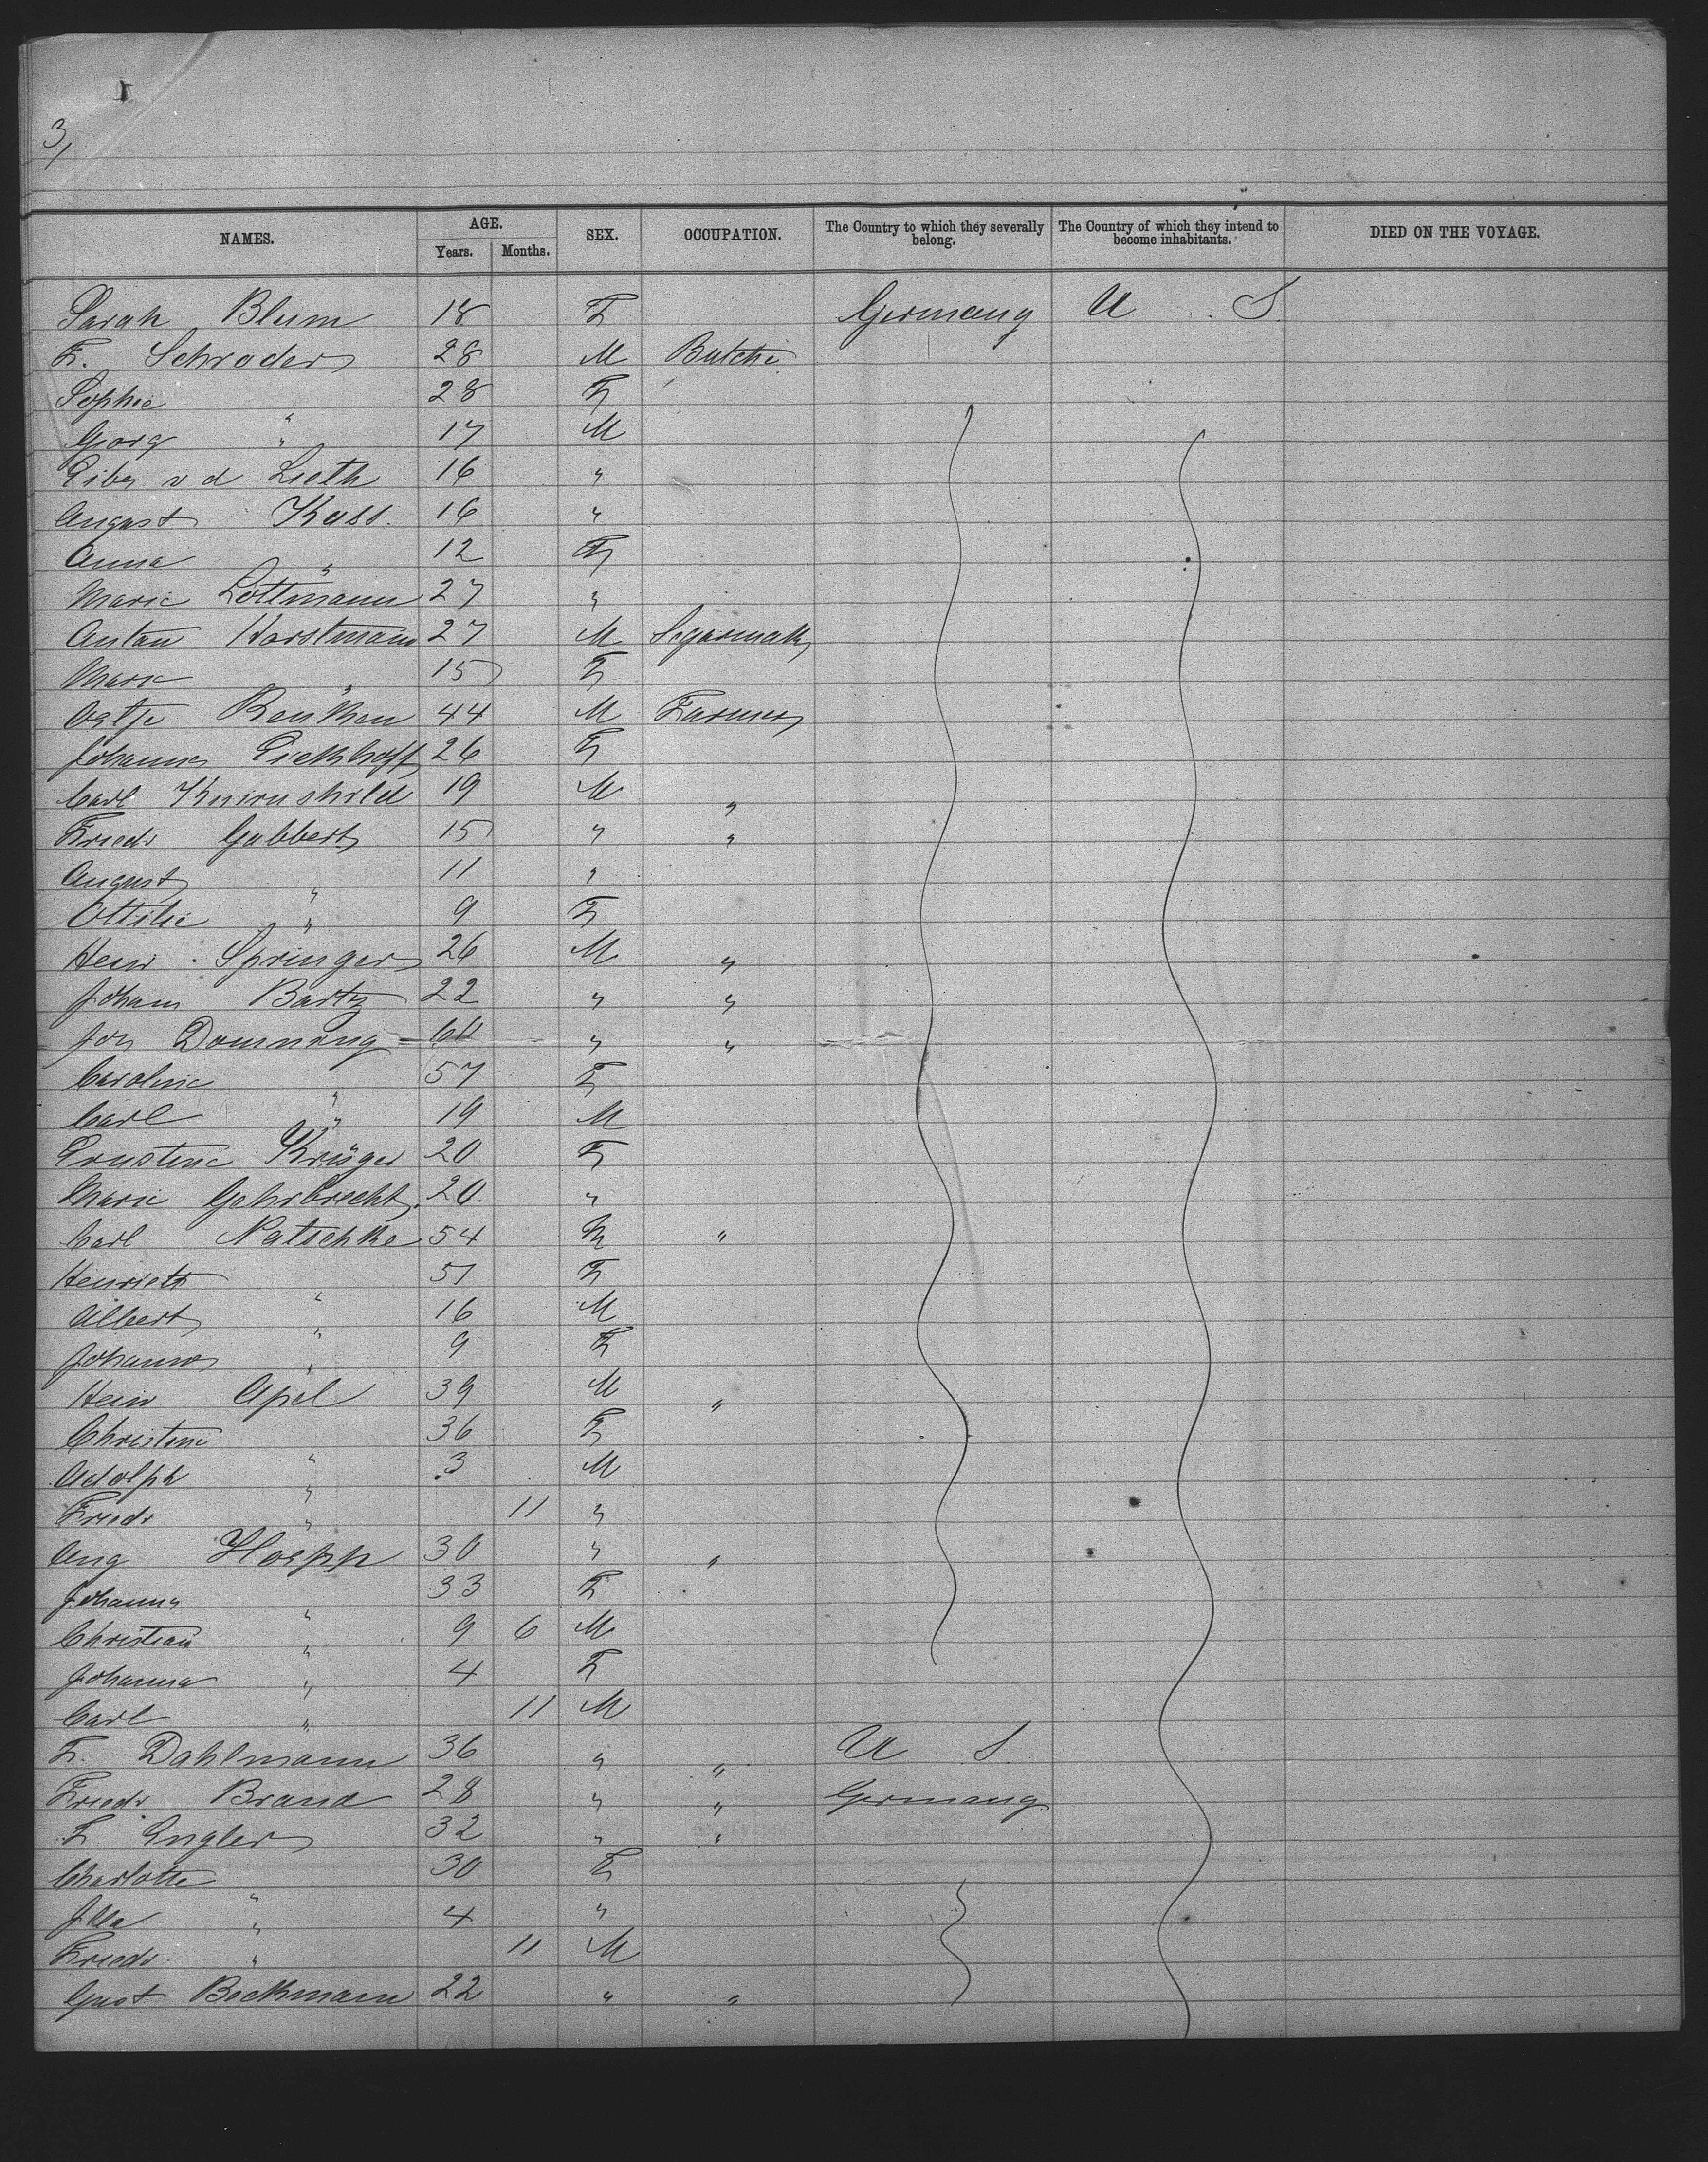 3,
NAMES. AGE. Years. Months. SEX. OCCUPATION. The Country to which they severally belong. The Country of which they intend to become inhabitants. DIED ON THE VOYAGE.
Sarah Blum 18 F Germany U. S.
F. Schroder 28 M Butche
Sophie " 28 F
Georg " 17 M
v d Lieth 16 "
August Kass. 16 "
Anna " 12 F
Marie Lottmann 27 "
Anton Horstmann 27 M Segarmak
Marie " 15 F
Renken 44 M Farmer
Johanne Eickhoff 26 F
Carl Knirnshild 19 M "
Friedr Gabbert 15 " "
August " 11 "
Ottilie " 9 F
Heinr. Springer 26 M "
Johann Bartz 22 " "
Jos Domning 64 " "
Caroline " 57 F
Carl " 19 M
Ernstine Krüger 20 F
Marie Gahrbrecht 20 "
Carl Natschke 54 M "
Henriett " 51 F
Albert " 16 M
Johanna " 9 F
Heinr Apel 39 M "
Christine " 36 F
Adolph " 3 M
Friedr " 11 "
Aug Hoepp 30 " "
Johanna " 33 F
Christian " 9 6 M
Johanna " 4 F
Carl " 11 M
F. Dahlmann 36 " " U S.
Friedr Brand 28 " " Germany
F Engler 32 " "
Charlotte " 30 F
" 4 "
Friedr. " 11 M
Gust Beckmann 22 " "